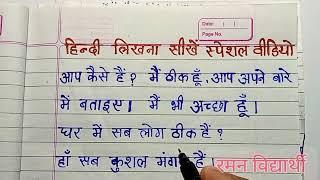 Date:
Page No.
हिन्दी लिखना सीखें स्पेशल वीडियो
आप कैसे हैं? मैं ठीक हूँ, आप अपने बारे
में बताइए। मैं भी अच्छा हूँ।
घर में सब लोग ठीक हैं?
हाँ सब कुशल मंगल हैं
रमन विद्यार्थी